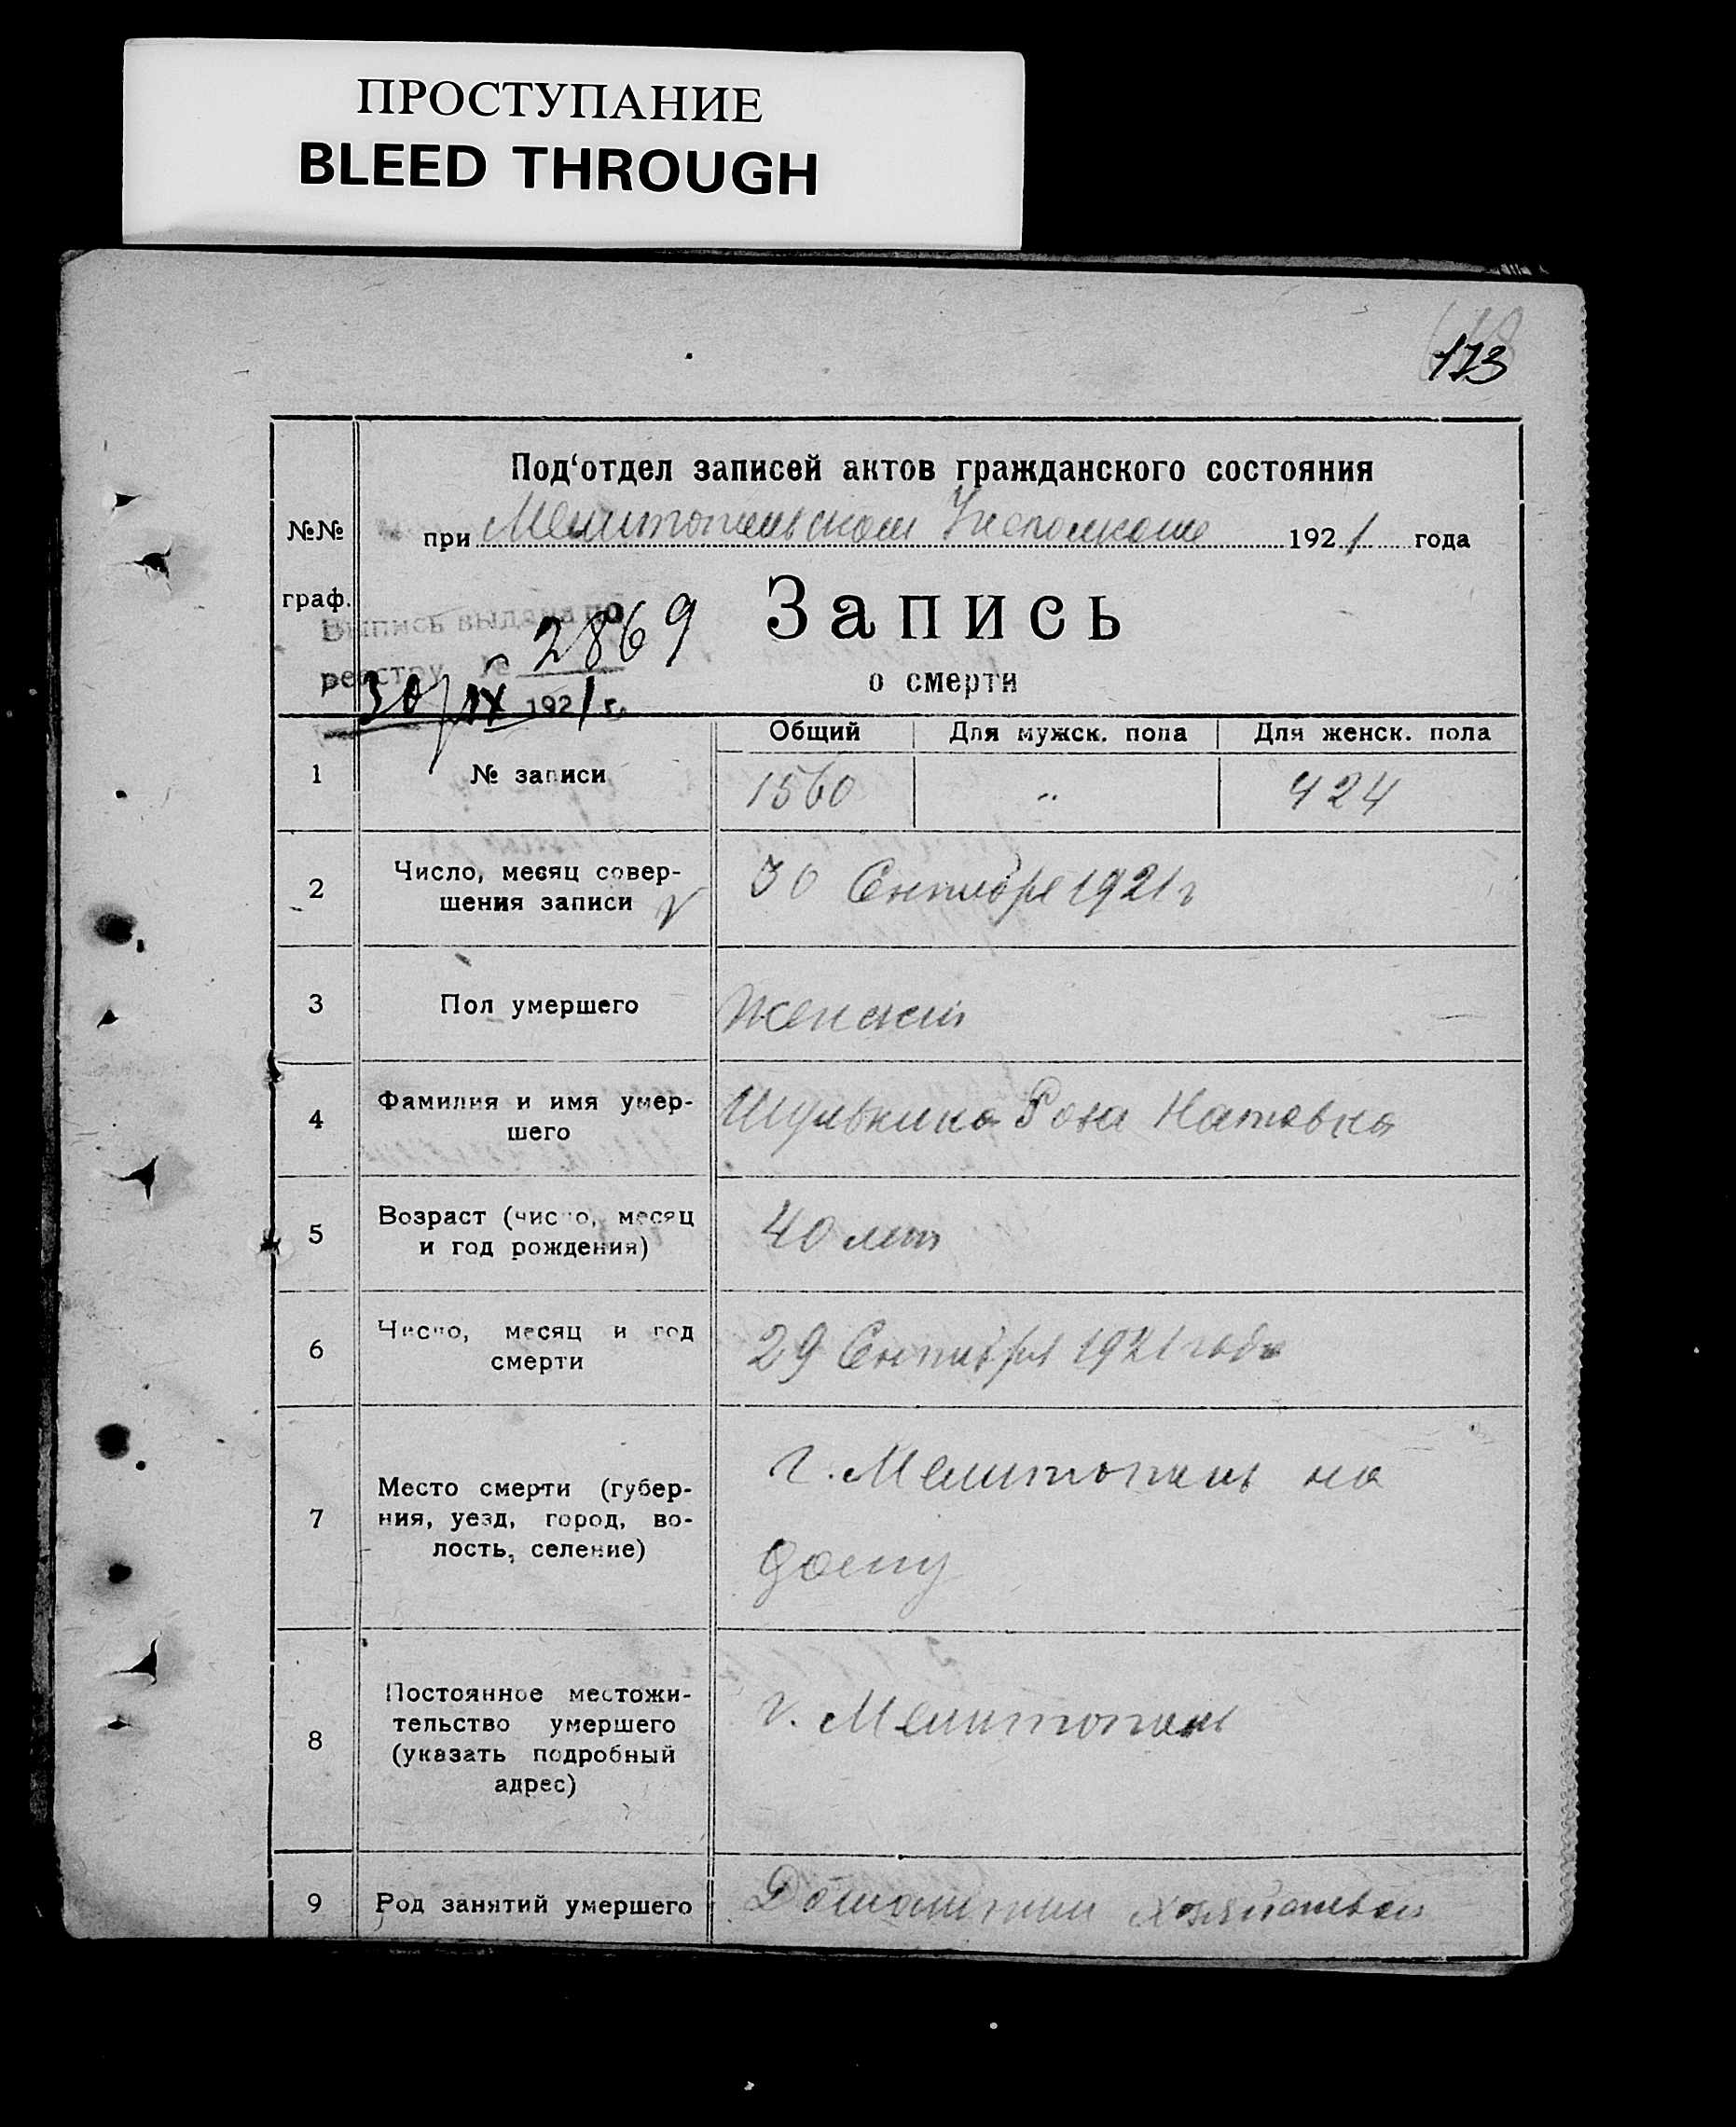 ПРОСТУПАНИЕ
BLEED THROUGH
173
Под‘отдел записей актов гражданского состояния
№№
при Мелитопольском Исполкоме 1921 года
граф.
Запись
о смерти
Выпись выдана по
реестру № 2869
30/IX 1921 г.
Общий Для мужск. пола Для женск. пола
1 № записи 1560 „ 424
2 Число, месяц совер-
шения записи
30 Сентября 1921 г
3 Пол умершего Женский
4 Фамилия и имя умер-
шего
Шулькина Роза
5 Возраст (число, месяц
и год рождения)
40 лет
6 Число, месяц и год
смерти
29 Сентября 1921 года
7 Место смерти (губер-
ния, уезд, город, во-
лость, селение)
г. Мелитополь на
дому
8 Постоянное местожи-
тельство умершего
(указать подробный
адрес)
г. Мелитополь
9 Род занятий умершего Домашним хозяйством